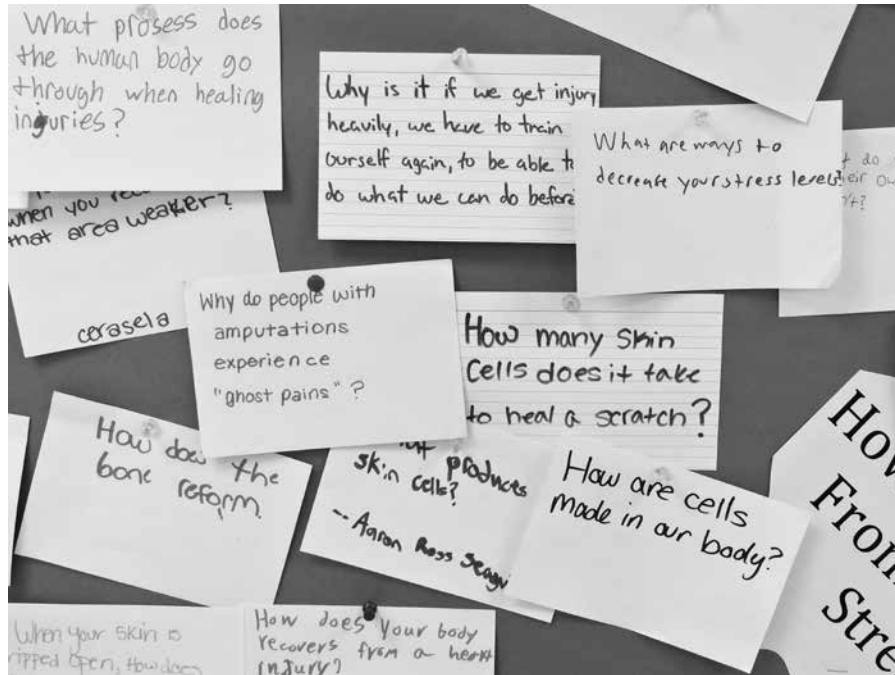 What prosess does
the human body go
through when healing
injuries?
Why is it if we get injury
heavily, we have to train
ourself again, to be able to
do what we can do before
What are ways to
decrease your stress levels?
do
their
when you
that area weaker?
cerasela
Why do people with
amputations
experience
"ghost pains"?
How many skin
cells does it take
to heal a scratch?
How does the
bone reform.
produces
skin cells?
-- Aaron Ross
How are cells
made in our body?
How
From
Stre
When your skin is
ripped open, How does
How does your body
recovers from a heart
injury?